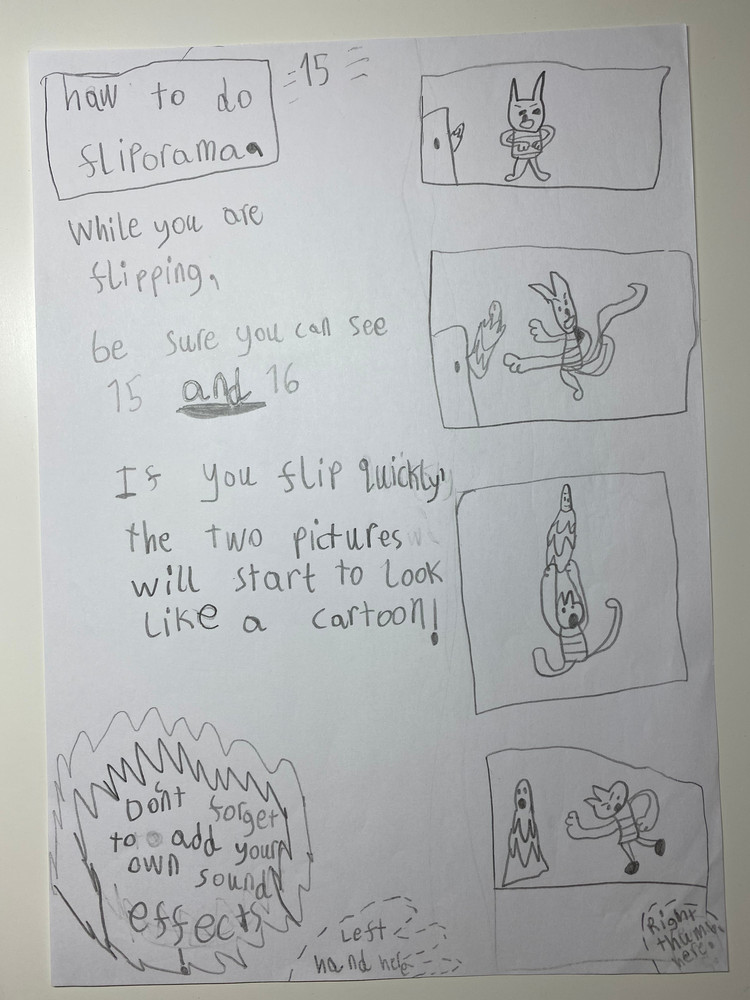 haw to do
fliporama
15
While you are
flipping,
be sure you can see
15 and 16
If you flip quickly,
the two pictures
will start to look
like a cartoon!
Don't forget
to add your
own sound
effects!
Left
hand here
Right
thumb
here!